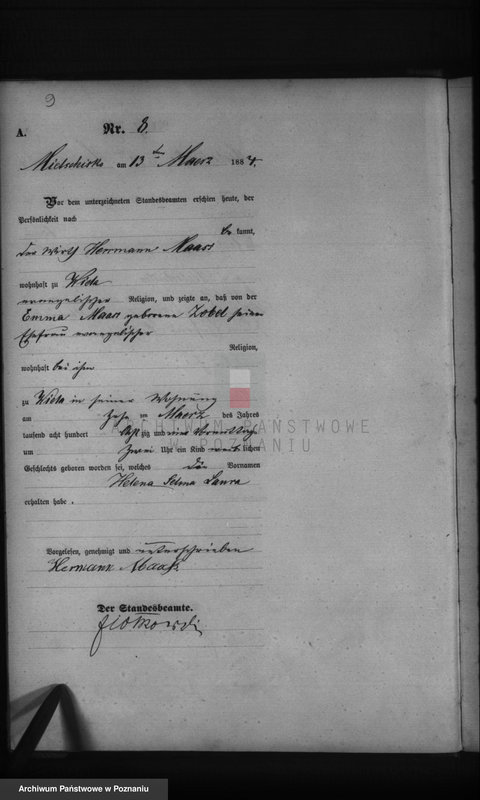 9
A.
Nr. 8.
Mietschisko am 13 ten Maerz 1884.
Vor dem unterzeichneten Standesbeamten erschien heute, der
Persönlichkeit nach
be kannt,
der Wirth Herrmann Maass
wohnhaft zu
evangelischer Religion, und zeigte an, daß von der
Emma Maass geborene Zobel seiner
Ehefrau evangelischer
Religion,
wohnhaft bei ihm
zu in seiner Wohnung
am ten Maerz des Jahres
tausend acht hundert acht zig und vier Vormittags
um zwei Uhr ein Kind weib lichen
Geschlechts geboren worden sei, welches die Vornamen
Helena Selma Laura
erhalten habe .
Vorgelesen, genehmigt und unterschrieben
Hermann Maaß.
Der Standesbeamte.
ARCHIWUM PAŃSTWOWE
W POZNANIU
Archiwum Państwowe w Poznaniu